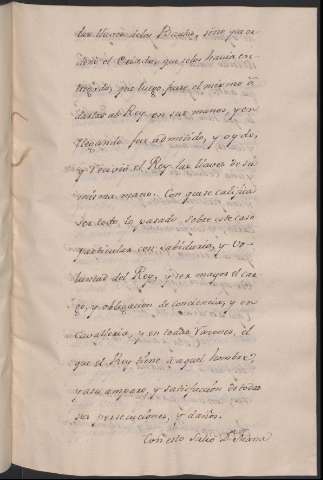 las llaves de los
denò el Criado, que se las havia en-
tregado, que luego fuese el mismo à
darlas al Rey en sus manos, y en
llegando fue admitido, y oydo,
y recivió el Rey las llaves de su
misma mano. Con que se califica
ser todo lo pasado sobre este caso
particular con sabiduria, y vo-
luntad del Rey, y ser mayor el car-
go, y obligacion de conciencia, y en
Cavalleria, y en todas razones, el
que el Rey tiene à aquel hombre,
y a su amparo, y satisfaccion de todas
sus persecuciones, y daños.
Con esto salió Dª Juana